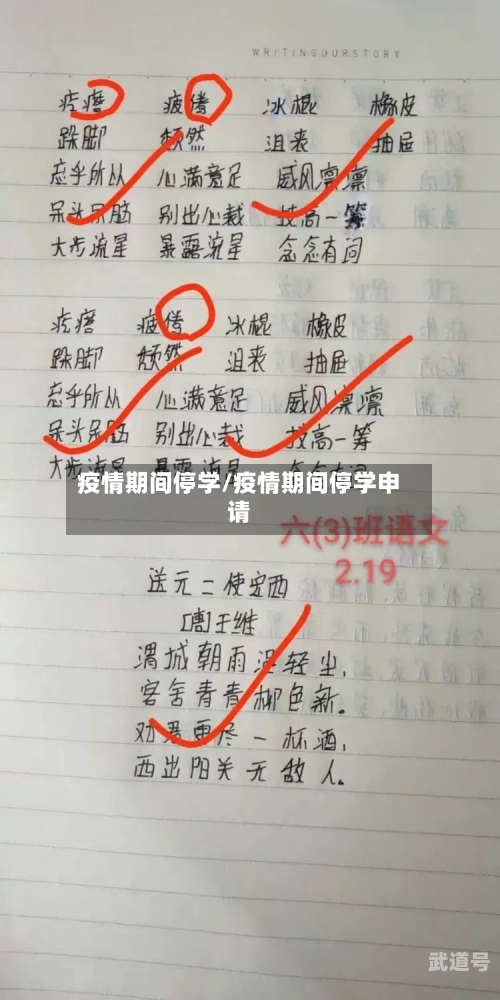 WRITINGOURSTORY
疙瘩 疲倦 冰棍 橡皮
跺脚 颓然 沮丧 抽屉
忘乎所以 心满意足 威风凛凛
呆头呆脑 别出心裁 技高一筹
大步流星 暴露流星 念念有词
疙瘩 疲倦 冰棍 橡皮
跺脚 颓然 沮丧 抽屉
忘乎所以 心满意足 威风凛凛
呆头呆脑 别出心裁 技高一筹
大步流星
疫情期间停学/疫情期间停学申
请
六(3)班语文
2.19
送元二使安西
[唐]王维
渭城朝雨浥轻尘,
客舍青青柳色新。
劝君更尽一杯酒,
西出阳关无故人。
武道号